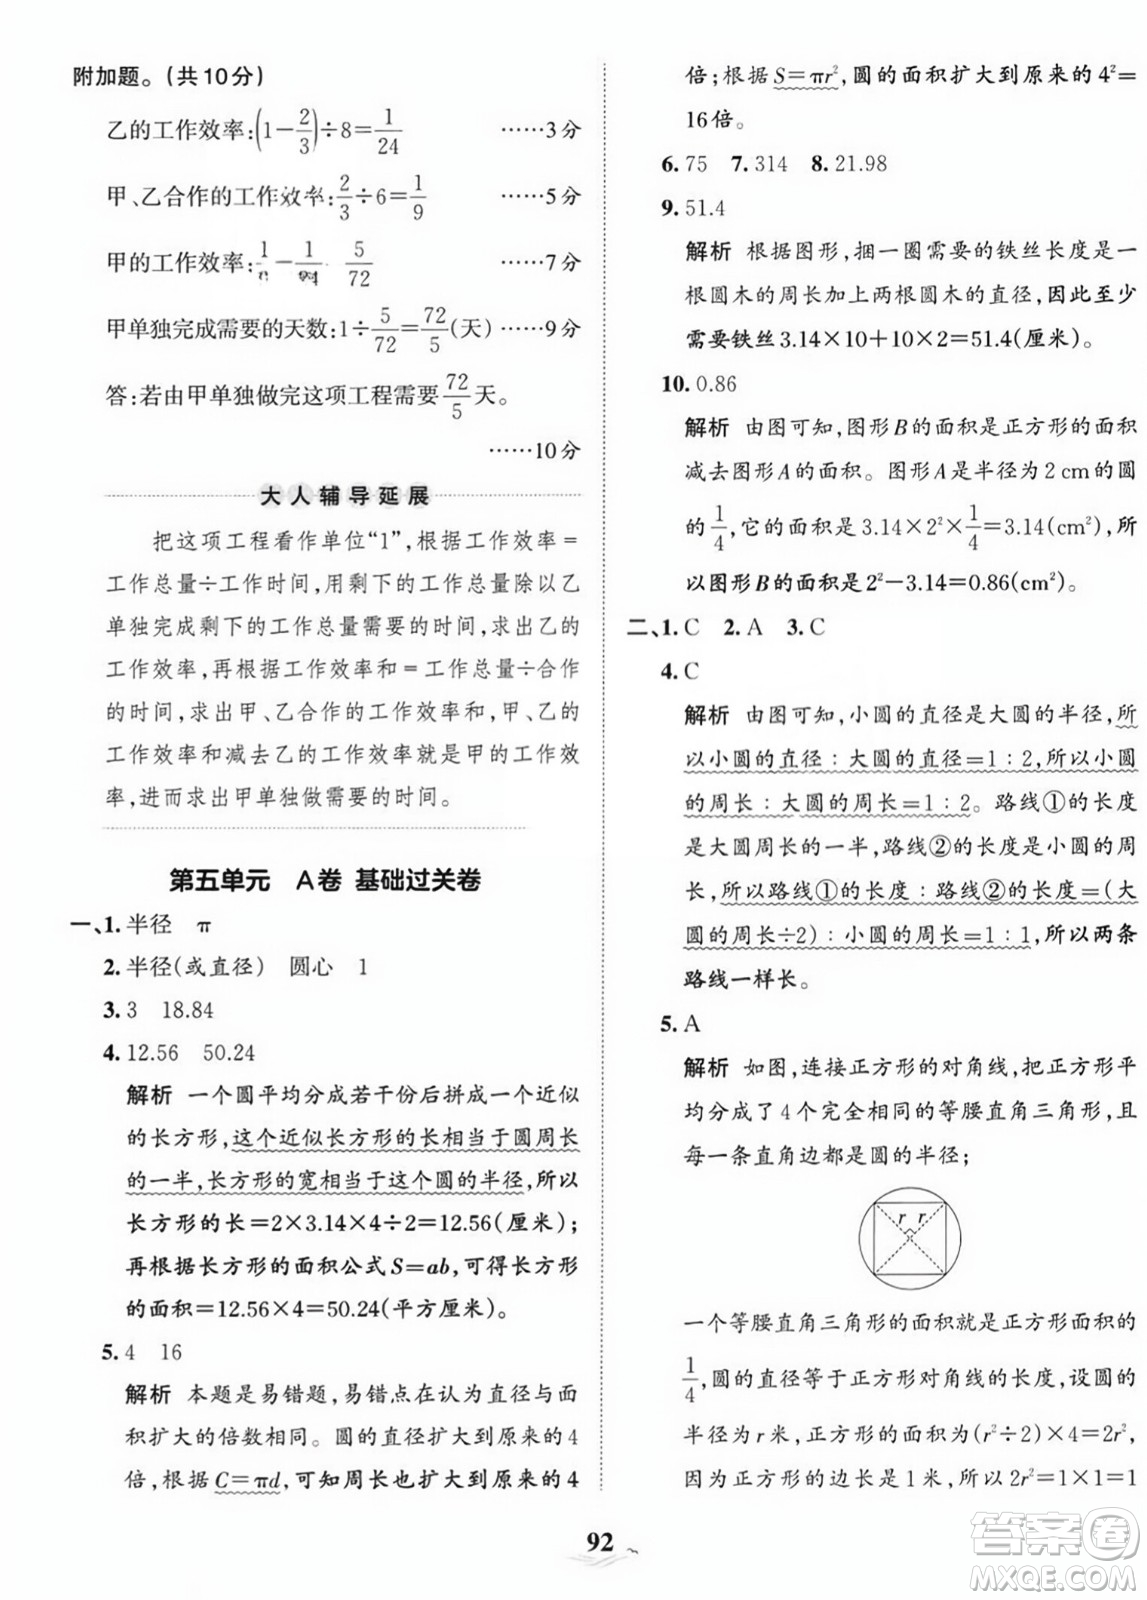 附加题。(共10分)
乙的工作效率:(1−2/3)÷8=1/24 ……3分
甲、乙合作的工作效率:2/3÷6=1/9 ……5分
甲的工作效率: 5/72 ……7分
甲单独完成需要的天数:1÷5/72=72/5(天) ……9分
答:若由甲单独做完这项工程需要72/5天。
……10分
大人辅导延展
把这项工程看作单位“1”,根据工作效率=
工作总量÷工作时间,用剩下的工作总量除以乙
单独完成剩下的工作总量需要的时间,求出乙的
工作效率,再根据工作效率和=工作总量÷合作
的时间,求出甲、乙合作的工作效率和,甲、乙的工
作效率和减去乙的工作效率就是甲的工作效
率,进而求出甲单独做需要的时间。
第五单元 A卷 基础过关卷
一、1.半径 π
2.半径(或直径) 圆心 1
3.3 18.84
4.12.56 50.24
解析 一个圆平均分成若干份后拼成一个近似
的长方形,这个近似长方形的长相当于圆周长
的一半,长方形的宽相当于这个圆的半径,所以
长方形的长=2×3.14×4÷2=12.56(厘米);
再根据长方形的面积公式S=ab,可得长方形
的面积=12.56×4=50.24(平方厘米)。
5.4 16
解析 本题是易错题,易错点在认为直径与面
积扩大的倍数相同。圆的直径扩大到原来的4
倍,根据C=πd,可知周长也扩大到原来的4
倍;根据S=πr²,圆的面积扩大到原来的4²=
16倍。
6.75 7.314 8.21.98
9.51.4
解析 根据图形,捆一圈需要的铁丝长度是一
根圆木的周长加上两根圆木的直径,因此至少
需要铁丝3.14×10+10×2=51.4(厘米)。
10.0.86
解析 由图可知,图形B的面积是正方形的面积
减去图形A的面积。图形A是半径为2 cm的圆
的1/4,它的面积是3.14×2²×1/4=3.14(cm²),所
以图形B的面积是2²−3.14=0.86(cm²)。
二、1.C 2.A 3.C
4.C
解析 由图可知,小圆的直径是大圆的半径,所
以小圆的直径:大圆的直径=1:2,所以小圆
的周长:大圆的周长=1:2。路线①的长度
是大圆周长的一半,路线②的长度是小圆的周
长,所以路线①的长度:路线②的长度=(大
圆的周长÷2):小圆的周长=1:1,所以两条
路线一样长。
5.A
解析 如图,连接正方形的对角线,把正方形平
均分成了4个完全相同的等腰直角三角形,且
每一条直角边都是圆的半径;
r r
一个等腰直角三角形的面积就是正方形面积的
1/4,圆的直径等于正方形对角线的长度,设圆的
半径为r米,正方形的面积=(r²÷2)×4=2r²,
因为正方形的边长是1米,所以2r²=1×1=1
92
答案卷
MXQE.COM